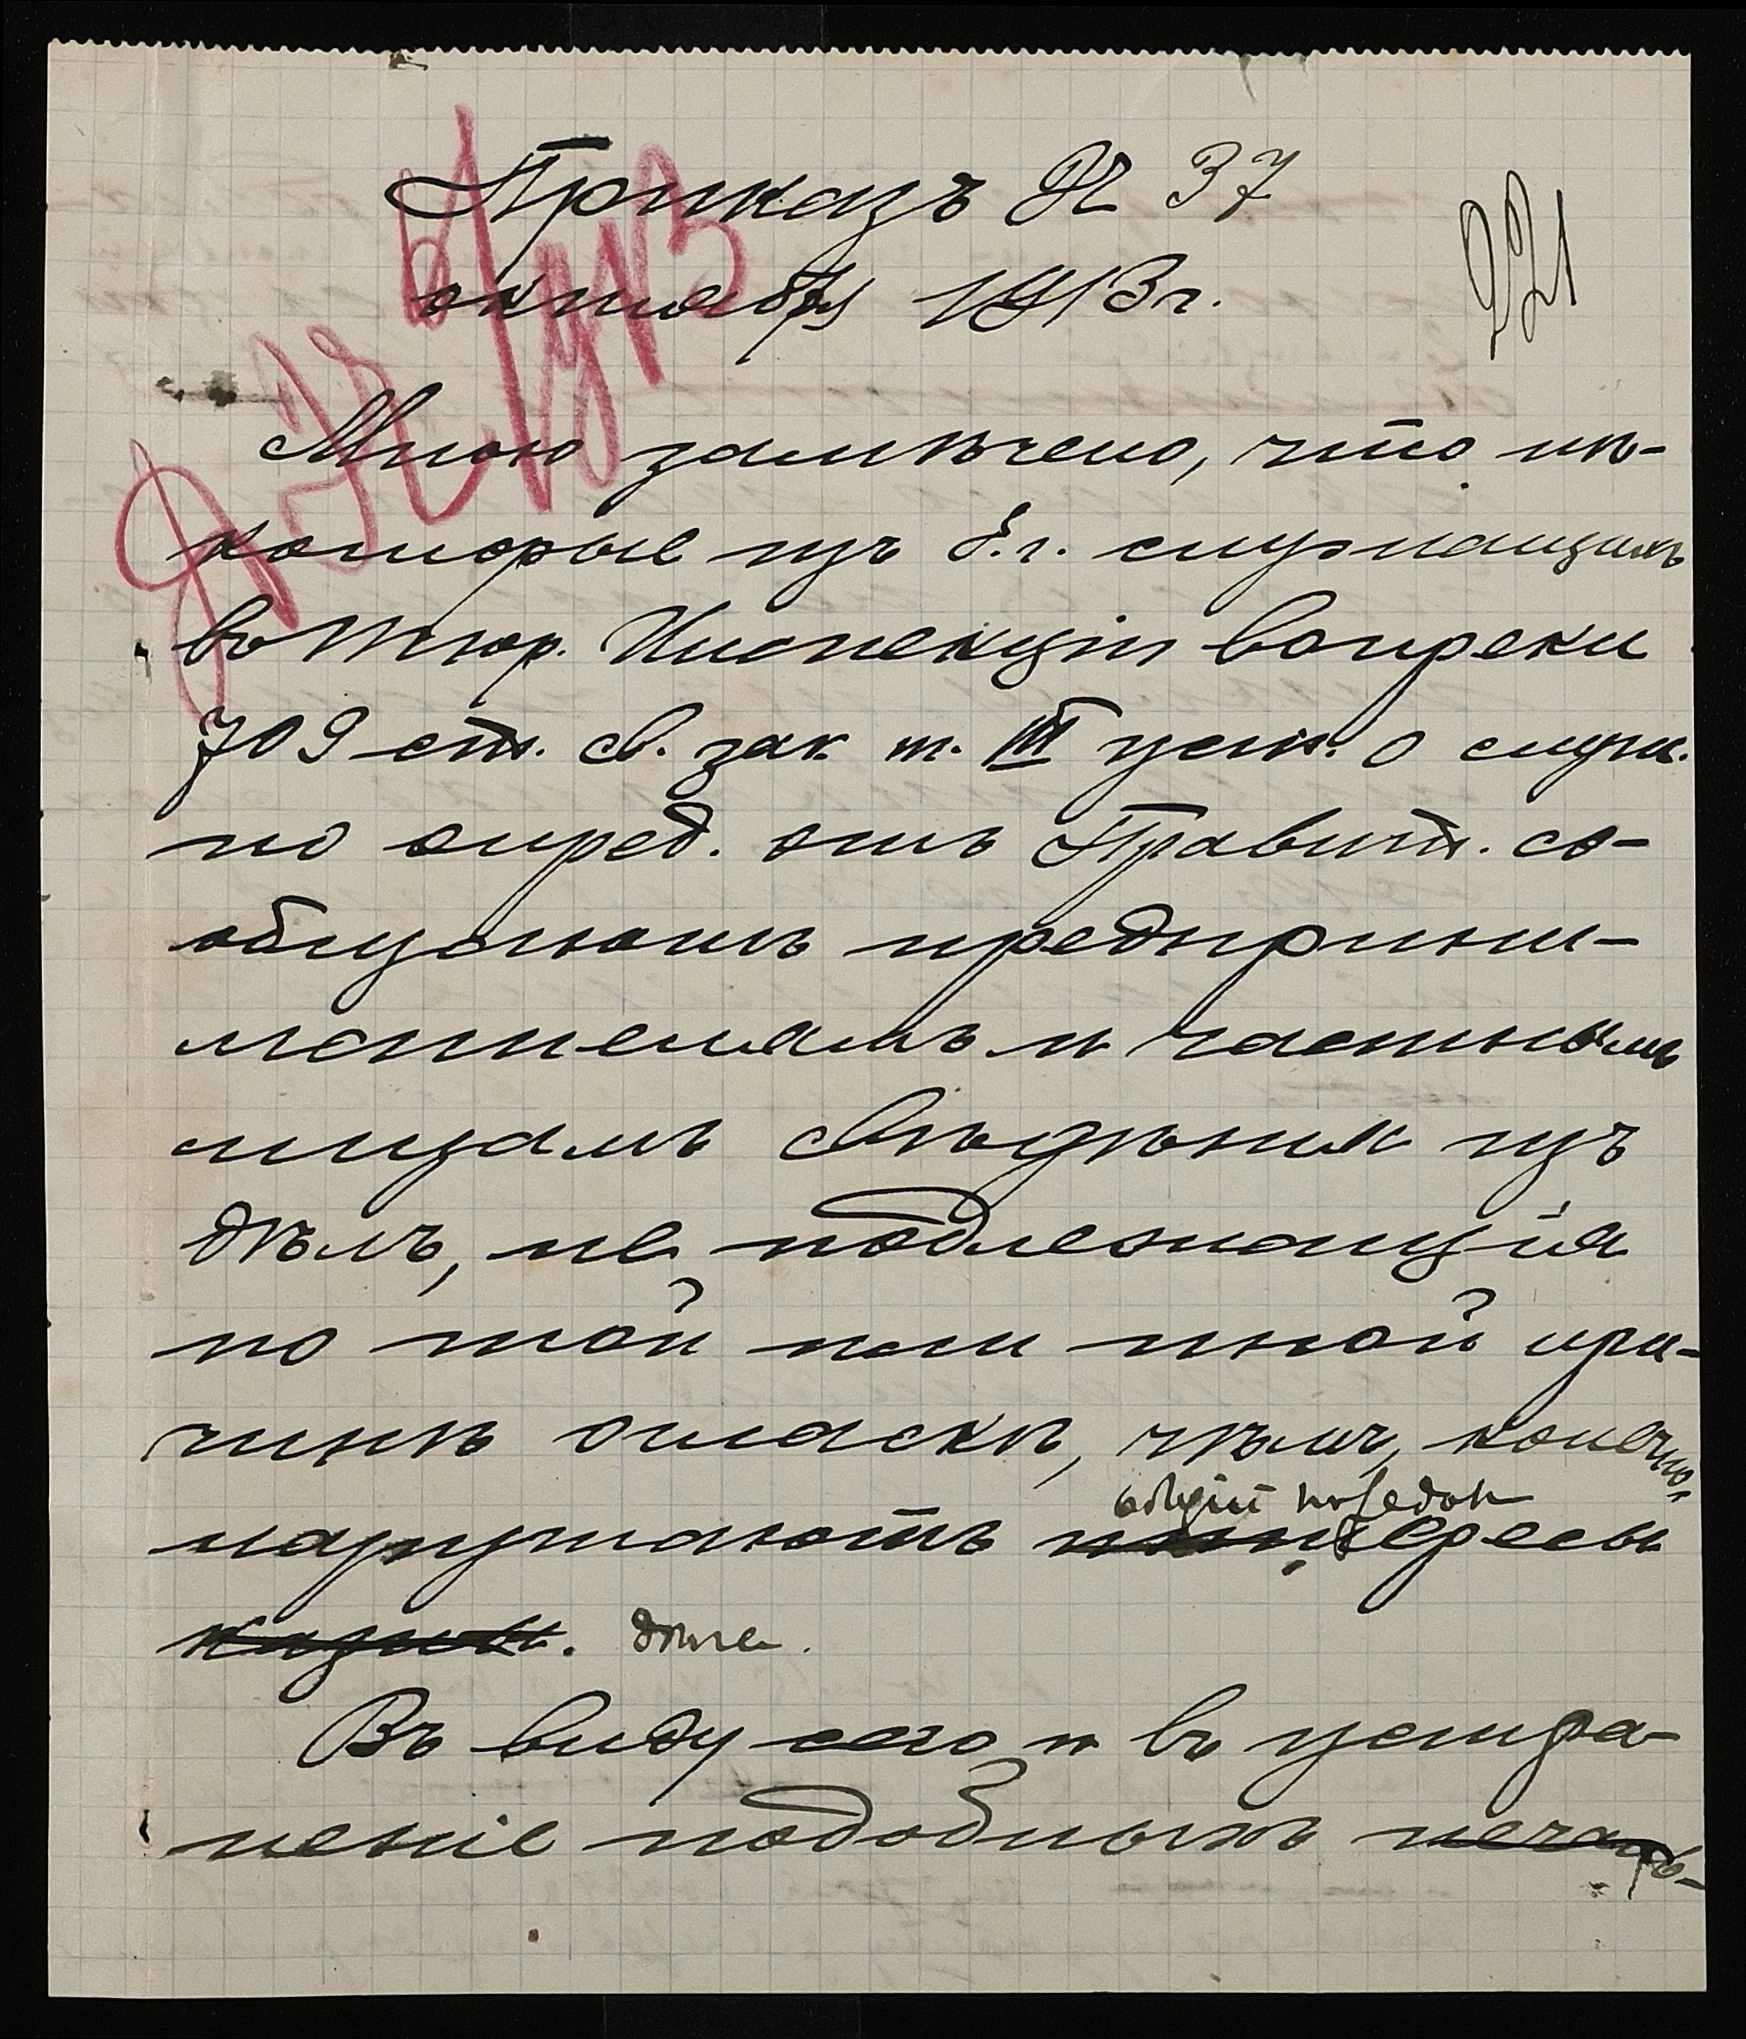 Приказъ № 37
221
октября 1913 г.
Мною замѣчено, что нѣ-
которые изъ г.г. служащихъ
въ Тюр. Инспекціи вопреки
709 ст. св. зак. т. III уст. о служ.
по опред. отъ Правит. со-
общаютъ предприни-
мателямъ и частнымъ
лицамъ свѣдѣнія изъ
дѣлъ, не подлежащія
по той или иной при-
чинѣ огласкѣ, чѣмъ, конечно,
общій порядокъ
нарушаютъ интересы
казны. дѣла.
Въ виду сего и въ устра-
неніе подобныхъ